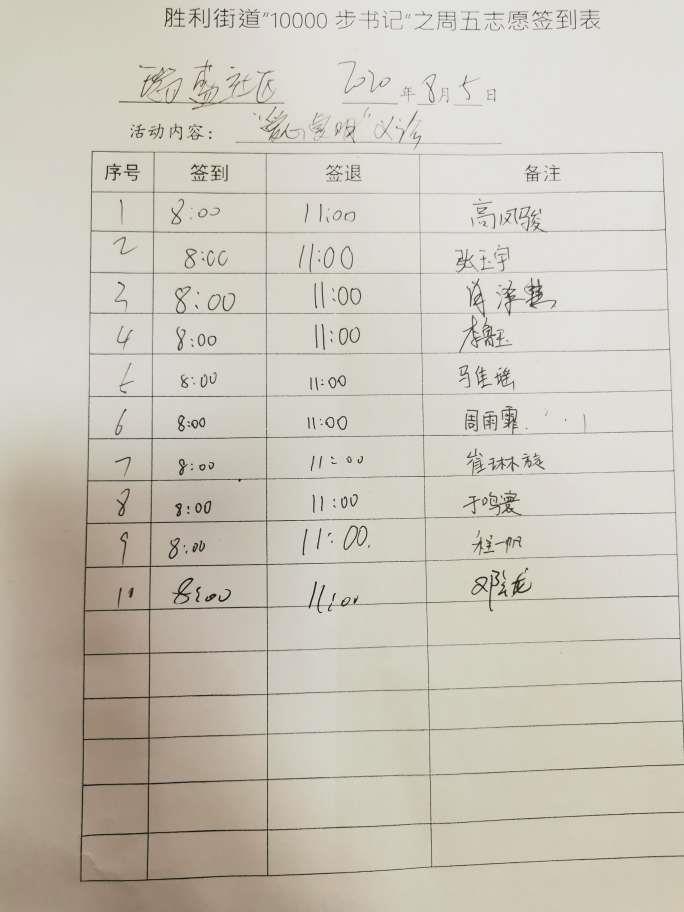 胜利街道“10000 步书记”之周五志愿签到表
社区 2020年8月5日
活动内容： 义诊
序号 签到 签退 备注
1 8:00 11:00 高凤骏
2 8:00 11:00 张玉宇
3 8:00 11:00 肖泽慧
4 8:00 11:00 李鲁玉
5 8:00 11:00 马佳瑶
6 8:00 11:00 周雨霏
7 8:00 11:00 崔琳旋
8 8:00 11:00 于鸣寰
9 8:00 11:00. 程一帆
10 8:00 11:00 邓云龙